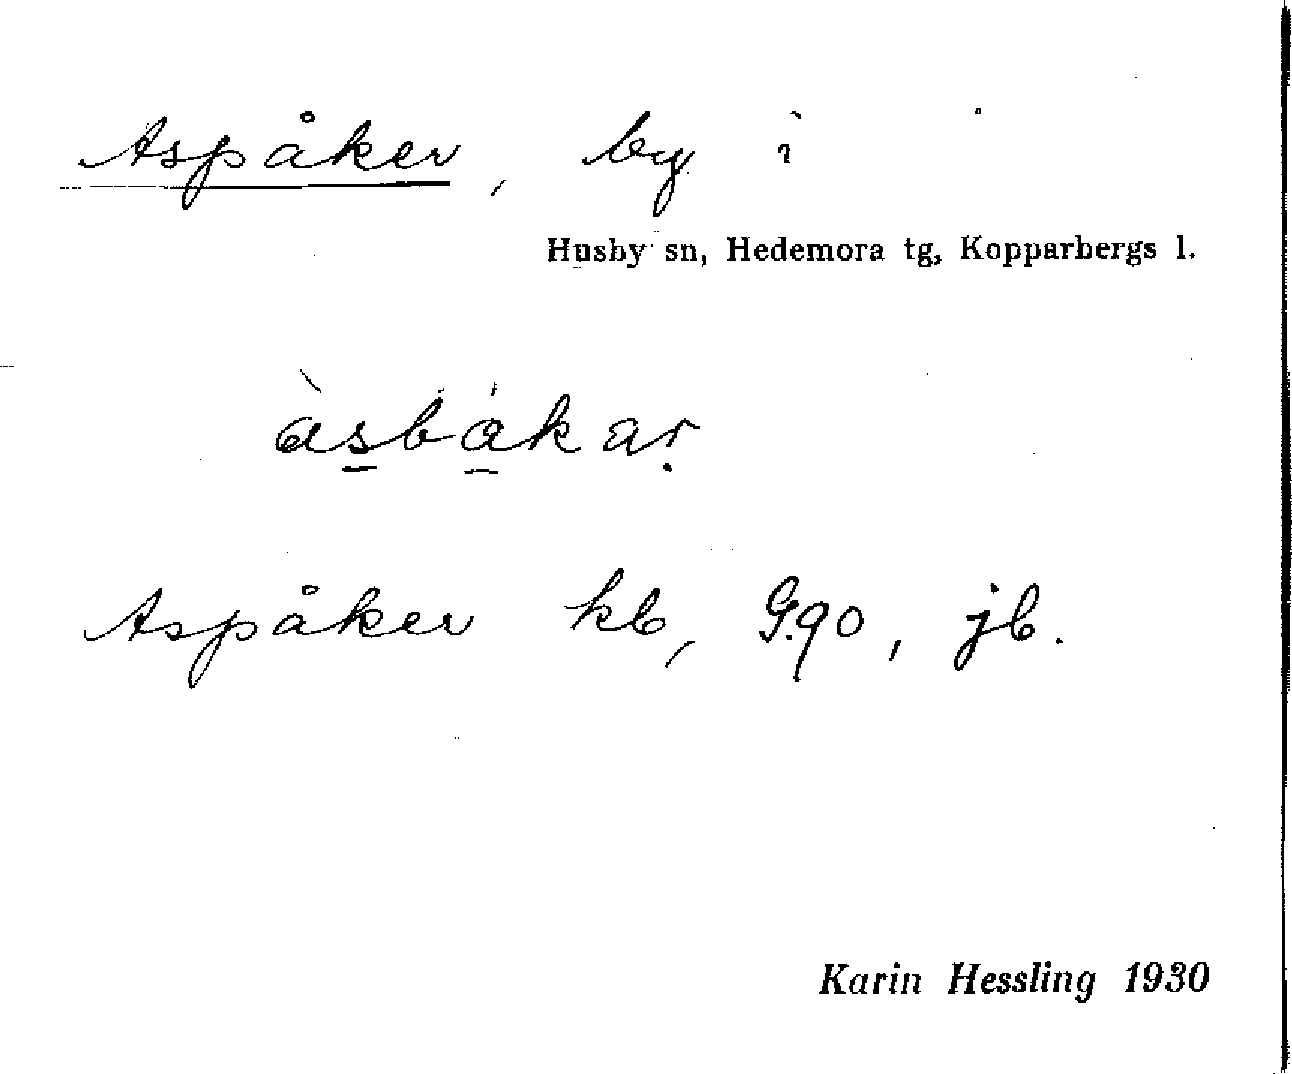 Aspåker, by i
Husby sn, Hedemora tg, Kopparbergs l.
àsbákar
Aspåker kb, G.90, jb.
Karin Hessling 1930